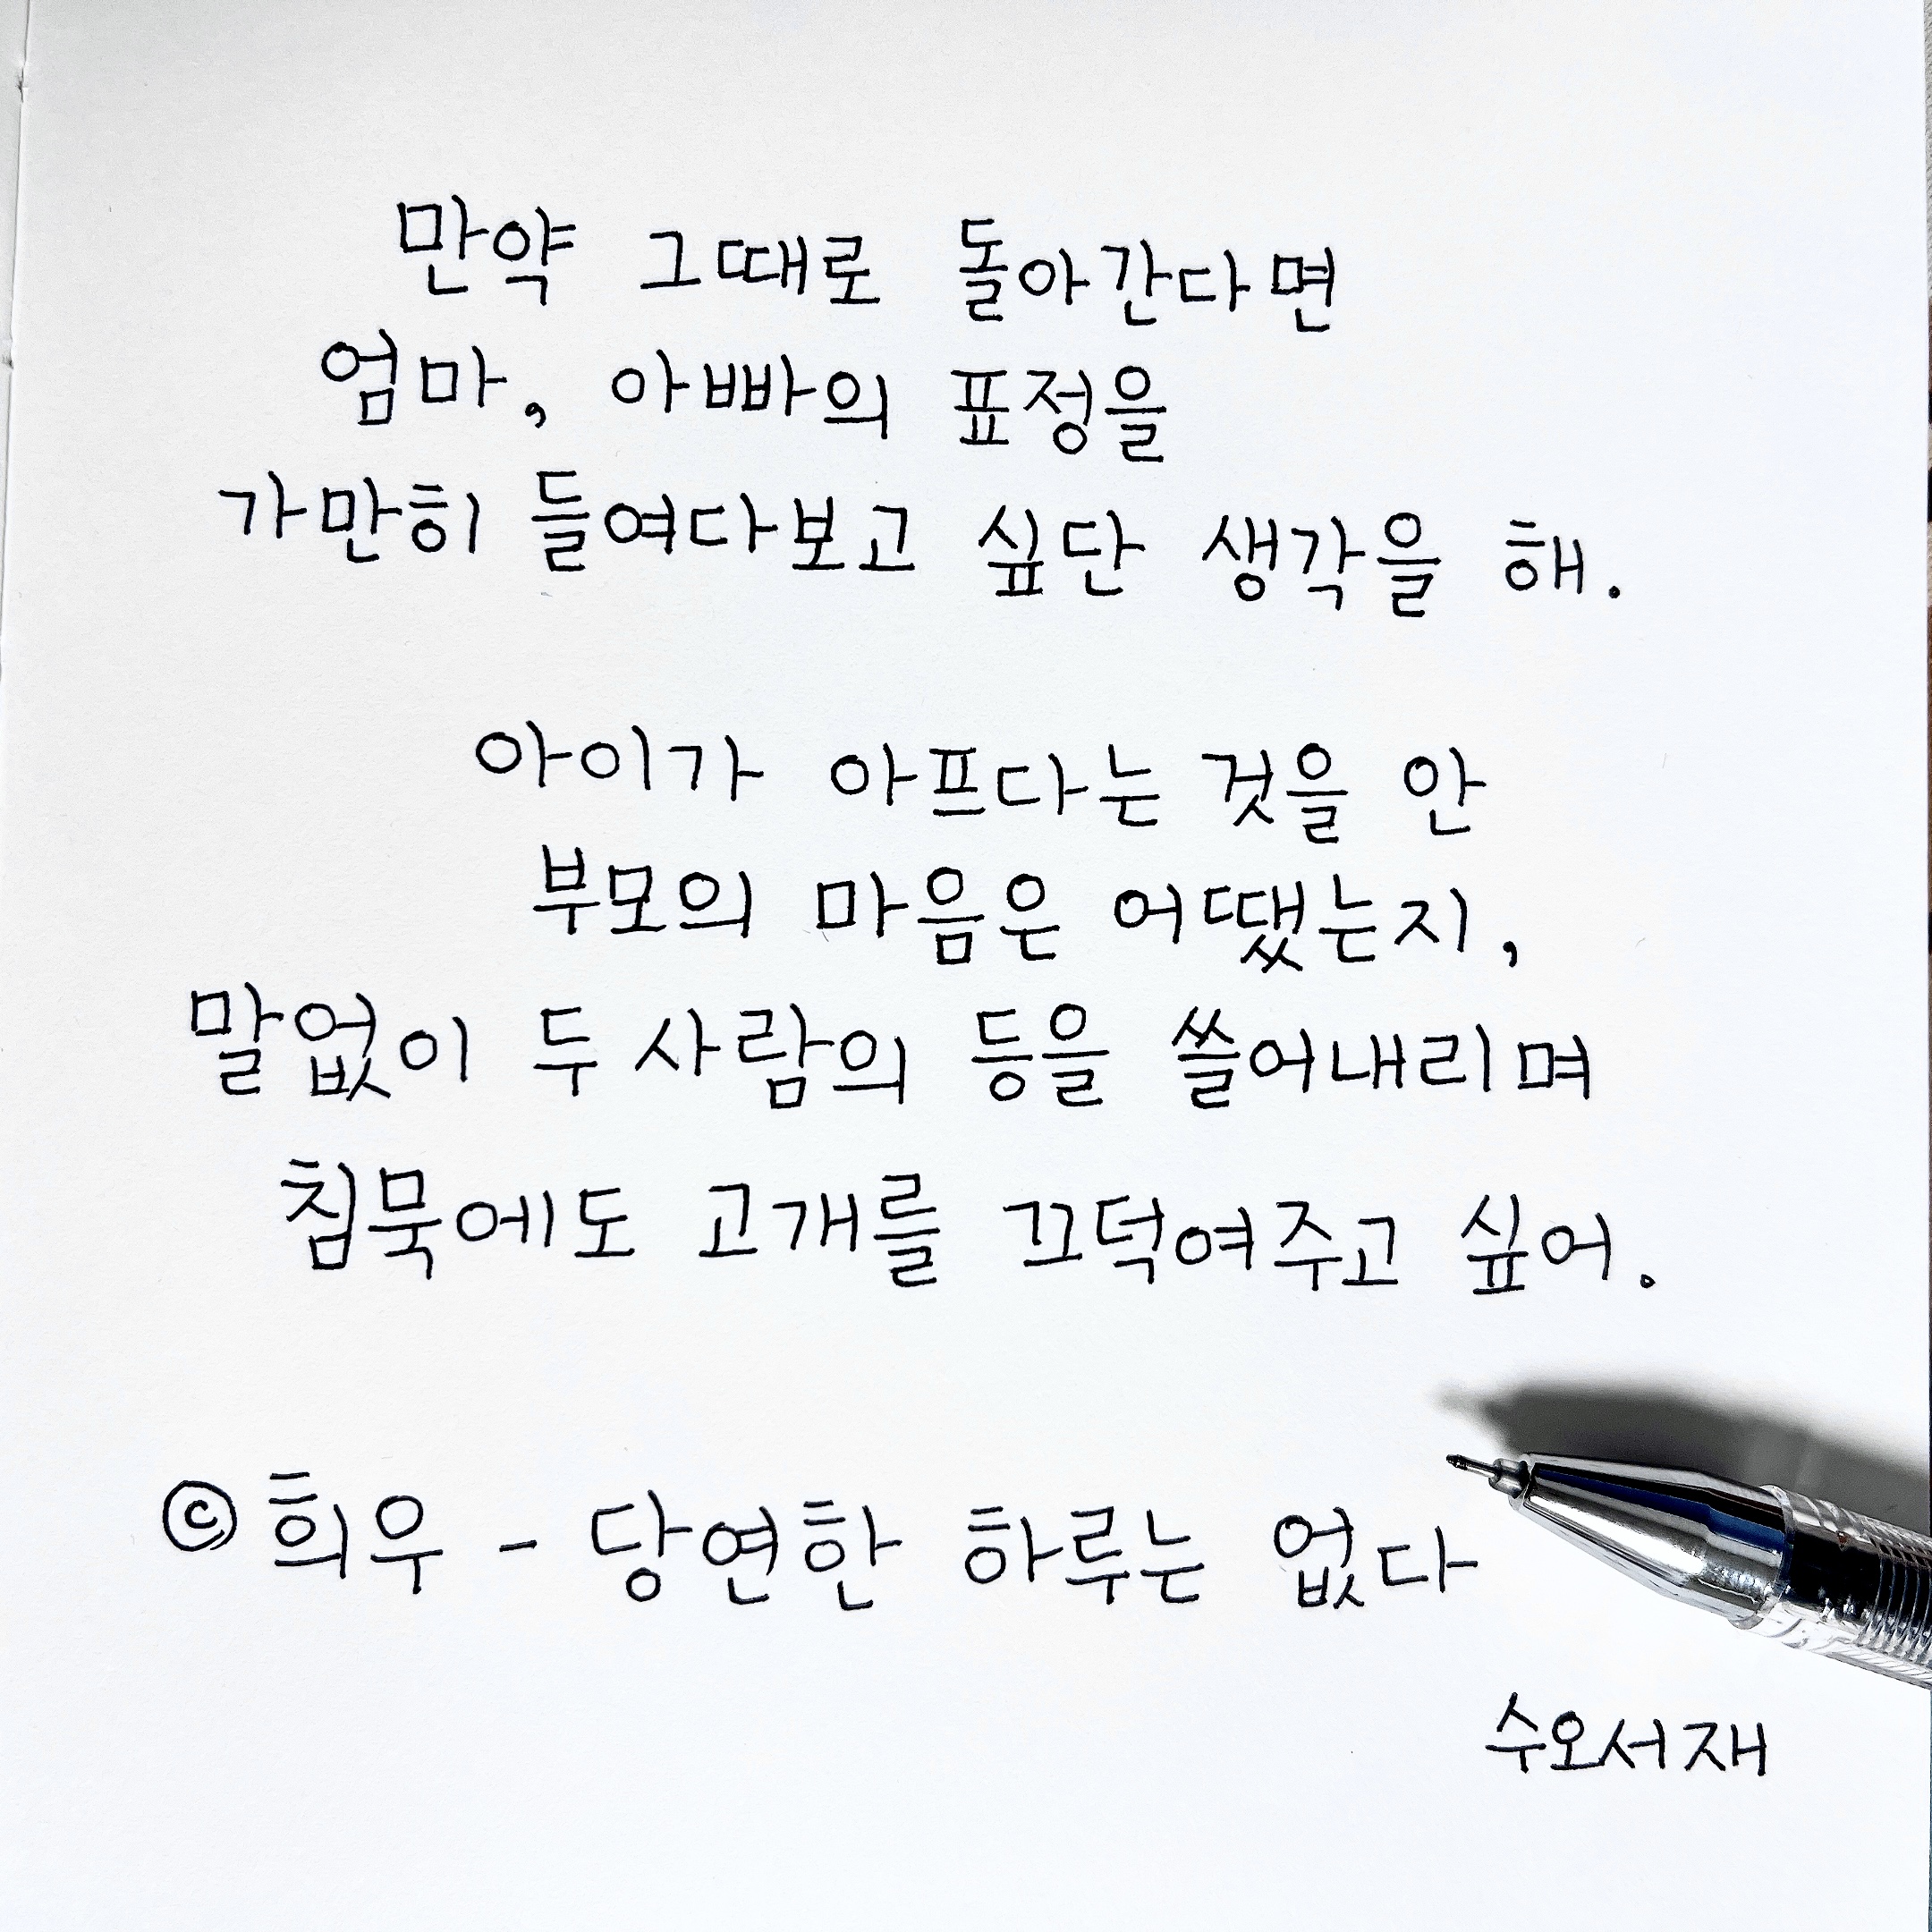 만약 그때로 돌아간다면
엄마, 아빠의 표정을
가만히 들여다보고 싶단 생각을 해.
아이가 아프다는 것을 안
부모의 마음은 어땠는지,
말없이 두 사람의 등을 쓸어내리며
침묵에도 고개를 끄덕여주고 싶어.
ⓒ 희우 - 당연한 하루는 없다
수오서재